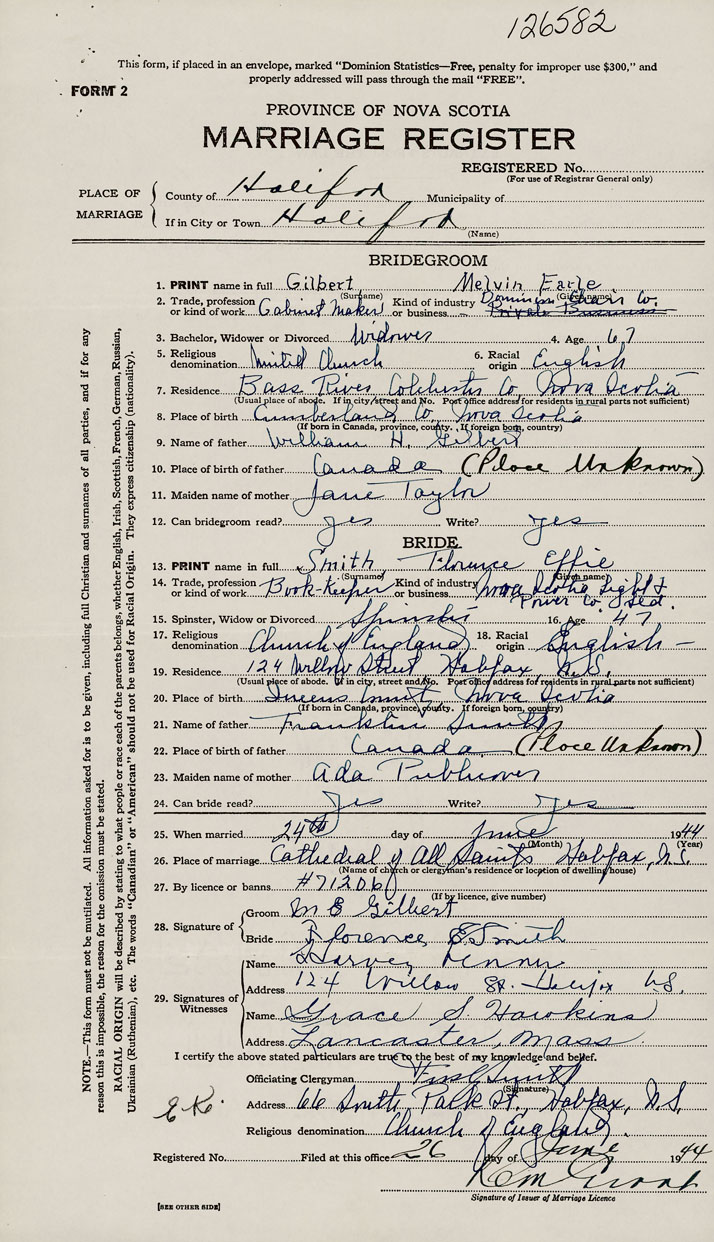 126582
This form, if placed in an envelope, marked "Dominion Statistics—Free, penalty for improper use $300," and
properly addressed will pass through the mail "FREE".
FORM 2
PROVINCE OF NOVA SCOTIA
MARRIAGE REGISTER
REGISTERED No.
(For use of Registrar General only)
PLACE OF MARRIAGE
County of Halifax Municipality of
If in City or Town Halifax
(Name)
BRIDEGROOM
1. PRINT name in full Gilbert Melvin Earle
(Surname) (Given name)
2. Trade, profession or kind of work Cabinet Maker Kind of industry or business Dominion Chair Co. Private Business
3. Bachelor, Widower or Divorced Widower 4. Age 67
5. Religious denomination United Church 6. Racial origin English
7. Residence Bass River Colchester Co, Nova Scotia
(Usual place of abode. If in city, street and No. Post office address for residents in rural parts not sufficient)
8. Place of birth Cumberland Co, Nova Scotia
(If born in Canada, province, county. If foreign born, country)
9. Name of father William H. Gilbert
10. Place of birth of father Canada (Place Unknown)
11. Maiden name of mother Jane Taylor
12. Can bridegroom read? yes Write? yes
BRIDE
13. PRINT name in full Smith Florence Effie
(Surname) (Given name)
14. Trade, profession or kind of work Book-Keeper Kind of industry or business Nova Scotia Light & Power Co. Ltd.
15. Spinster, Widow or Divorced Spinster 16. Age 47
17. Religious denomination Church of England 18. Racial origin English
19. Residence 124 Willow Street Halifax, N.S.
(Usual place of abode. If in city, street and No. Post office address for residents in rural parts not sufficient)
20. Place of birth Queens County, Nova Scotia
(If born in Canada, province, county. If foreign born, country)
21. Name of father Franklin Smith
22. Place of birth of father Canada (Place Unknown)
23. Maiden name of mother Ada Publicover
24. Can bride read? Yes Write? Yes
25. When married 24th day of June 1944
(Month) (Year)
26. Place of marriage Cathedral of All Saints Halifax, N.S.
(Name of church or clergyman's residence or location of dwelling house)
27. By licence or banns #71206
(If by licence, give number)
28. Signature of
Groom M E Gilbert
Bride Florence E. Smith
29. Signatures of Witnesses
Name Harvey
Address 124 Willow St. Halifax NS.
Name Grace S. Hawkins
Address Lancaster, Mass
I certify the above stated particulars are true to the best of my knowledge and belief.
Officiating Clergyman Smith
(Signature)
Address 66 South Park St., Halifax, N.S.
Religious denomination Church of England.
Registered No. Filed at this office 26 day of June 1944
Signature of Issuer of Marriage Licence
[SEE OTHER SIDE]
NOTE.—This form must not be mutilated. All information asked for is to be given, including full Christian and surnames of all parties, and if for any
reason this is impossible, the reason for the omission must be stated.
RACIAL ORIGIN will be described by stating to what people or race each of the parents belongs, whether English, Irish, Scottish, French, German, Russian,
Ukrainian (Ruthenian), etc. The words "Canadian" or "American" should not be used for Racial Origin. They express citizenship (nationality).